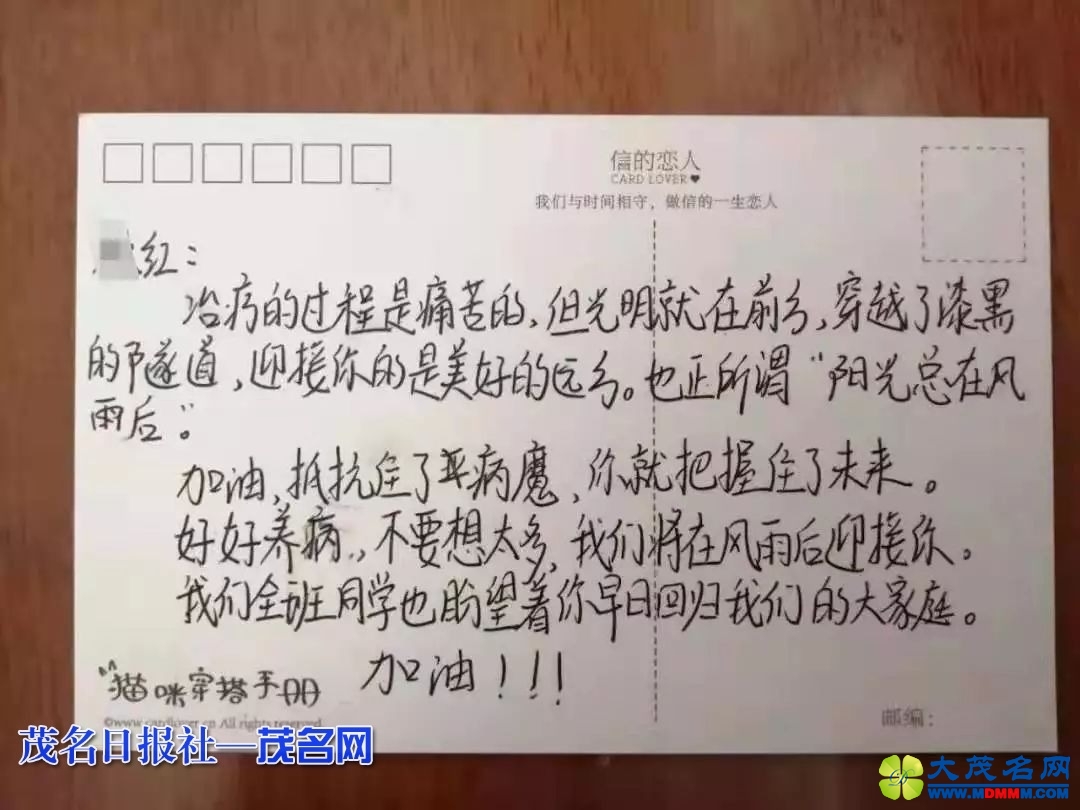 信的恋人
CARD LOVER
我们与时间相守，做信的一生恋人
红：
治疗的过程是痛苦的，但光明就在前方，穿越了漆黑
的隧道，迎接你的是美好的远方。也正所谓“阳光总在风
雨后”。
加油，抵抗住了病魔，你就把握住了未来。
好好养病，不要想太多，我们将在风雨后迎接你。
我们全班同学也盼望着你早日回归我们的大家庭。
加油！！！
猫咪穿搭手册
©www.cardlover.cn All rights reserved
邮编：
茂名日报社—茂名网
大茂名网
WWW.MDMMM.COM